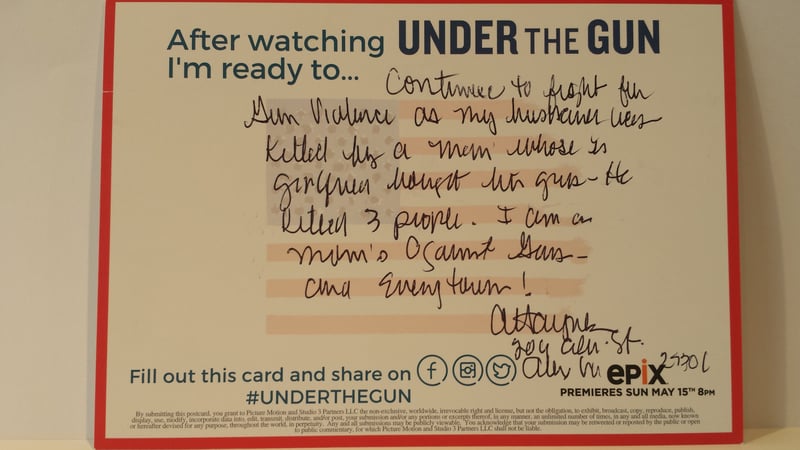 After watching UNDER THE GUN
I'm ready to...
Continue to fight for
Gun Violence as my husband was
Killed by a man whose
girlfriend bought his guns - He
killed 3 people. I am a
mom's Against Guns -
and Everytown!
St.
Alex
Fill out this card and share on
#UNDERTHEGUN
epix
PREMIERES SUN MAY 15TH 8PM
By submitting this postcard, you grant to Picture Motion and Studio 3 Partners LLC the non-exclusive, worldwide, irrevocable right and license, but not the obligation, to exhibit, broadcast, copy, reproduce, publish,
display, use, modify, incorporate data into, edit, transmit, distribute, and/or post, your submission and/or any portions or excerpts thereof, in any manner, an unlimited number of times, in any and all media, now known
or hereafter devised for any purpose, throughout the world, in perpetuity. Any and all submissions may be publicly viewable. You acknowledge that your submission may be retweeted or reposted by the public or open
to public commentary, for which Picture Motion and Studio 3 Partners LLC shall not be liable.